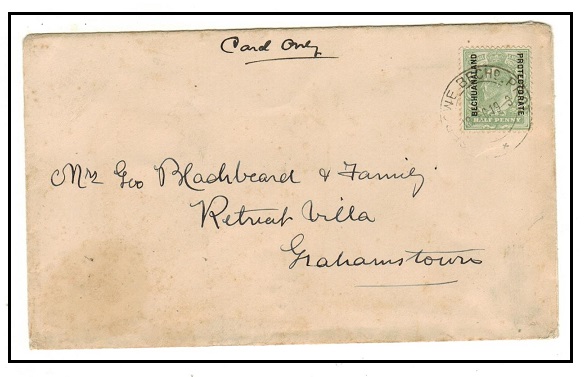 Card Only
BECHUANALAND
PROTECTORATE
HALF PENNY
Mrs Geo Blackbeard & Family
Retreat Villa
Grahamstown